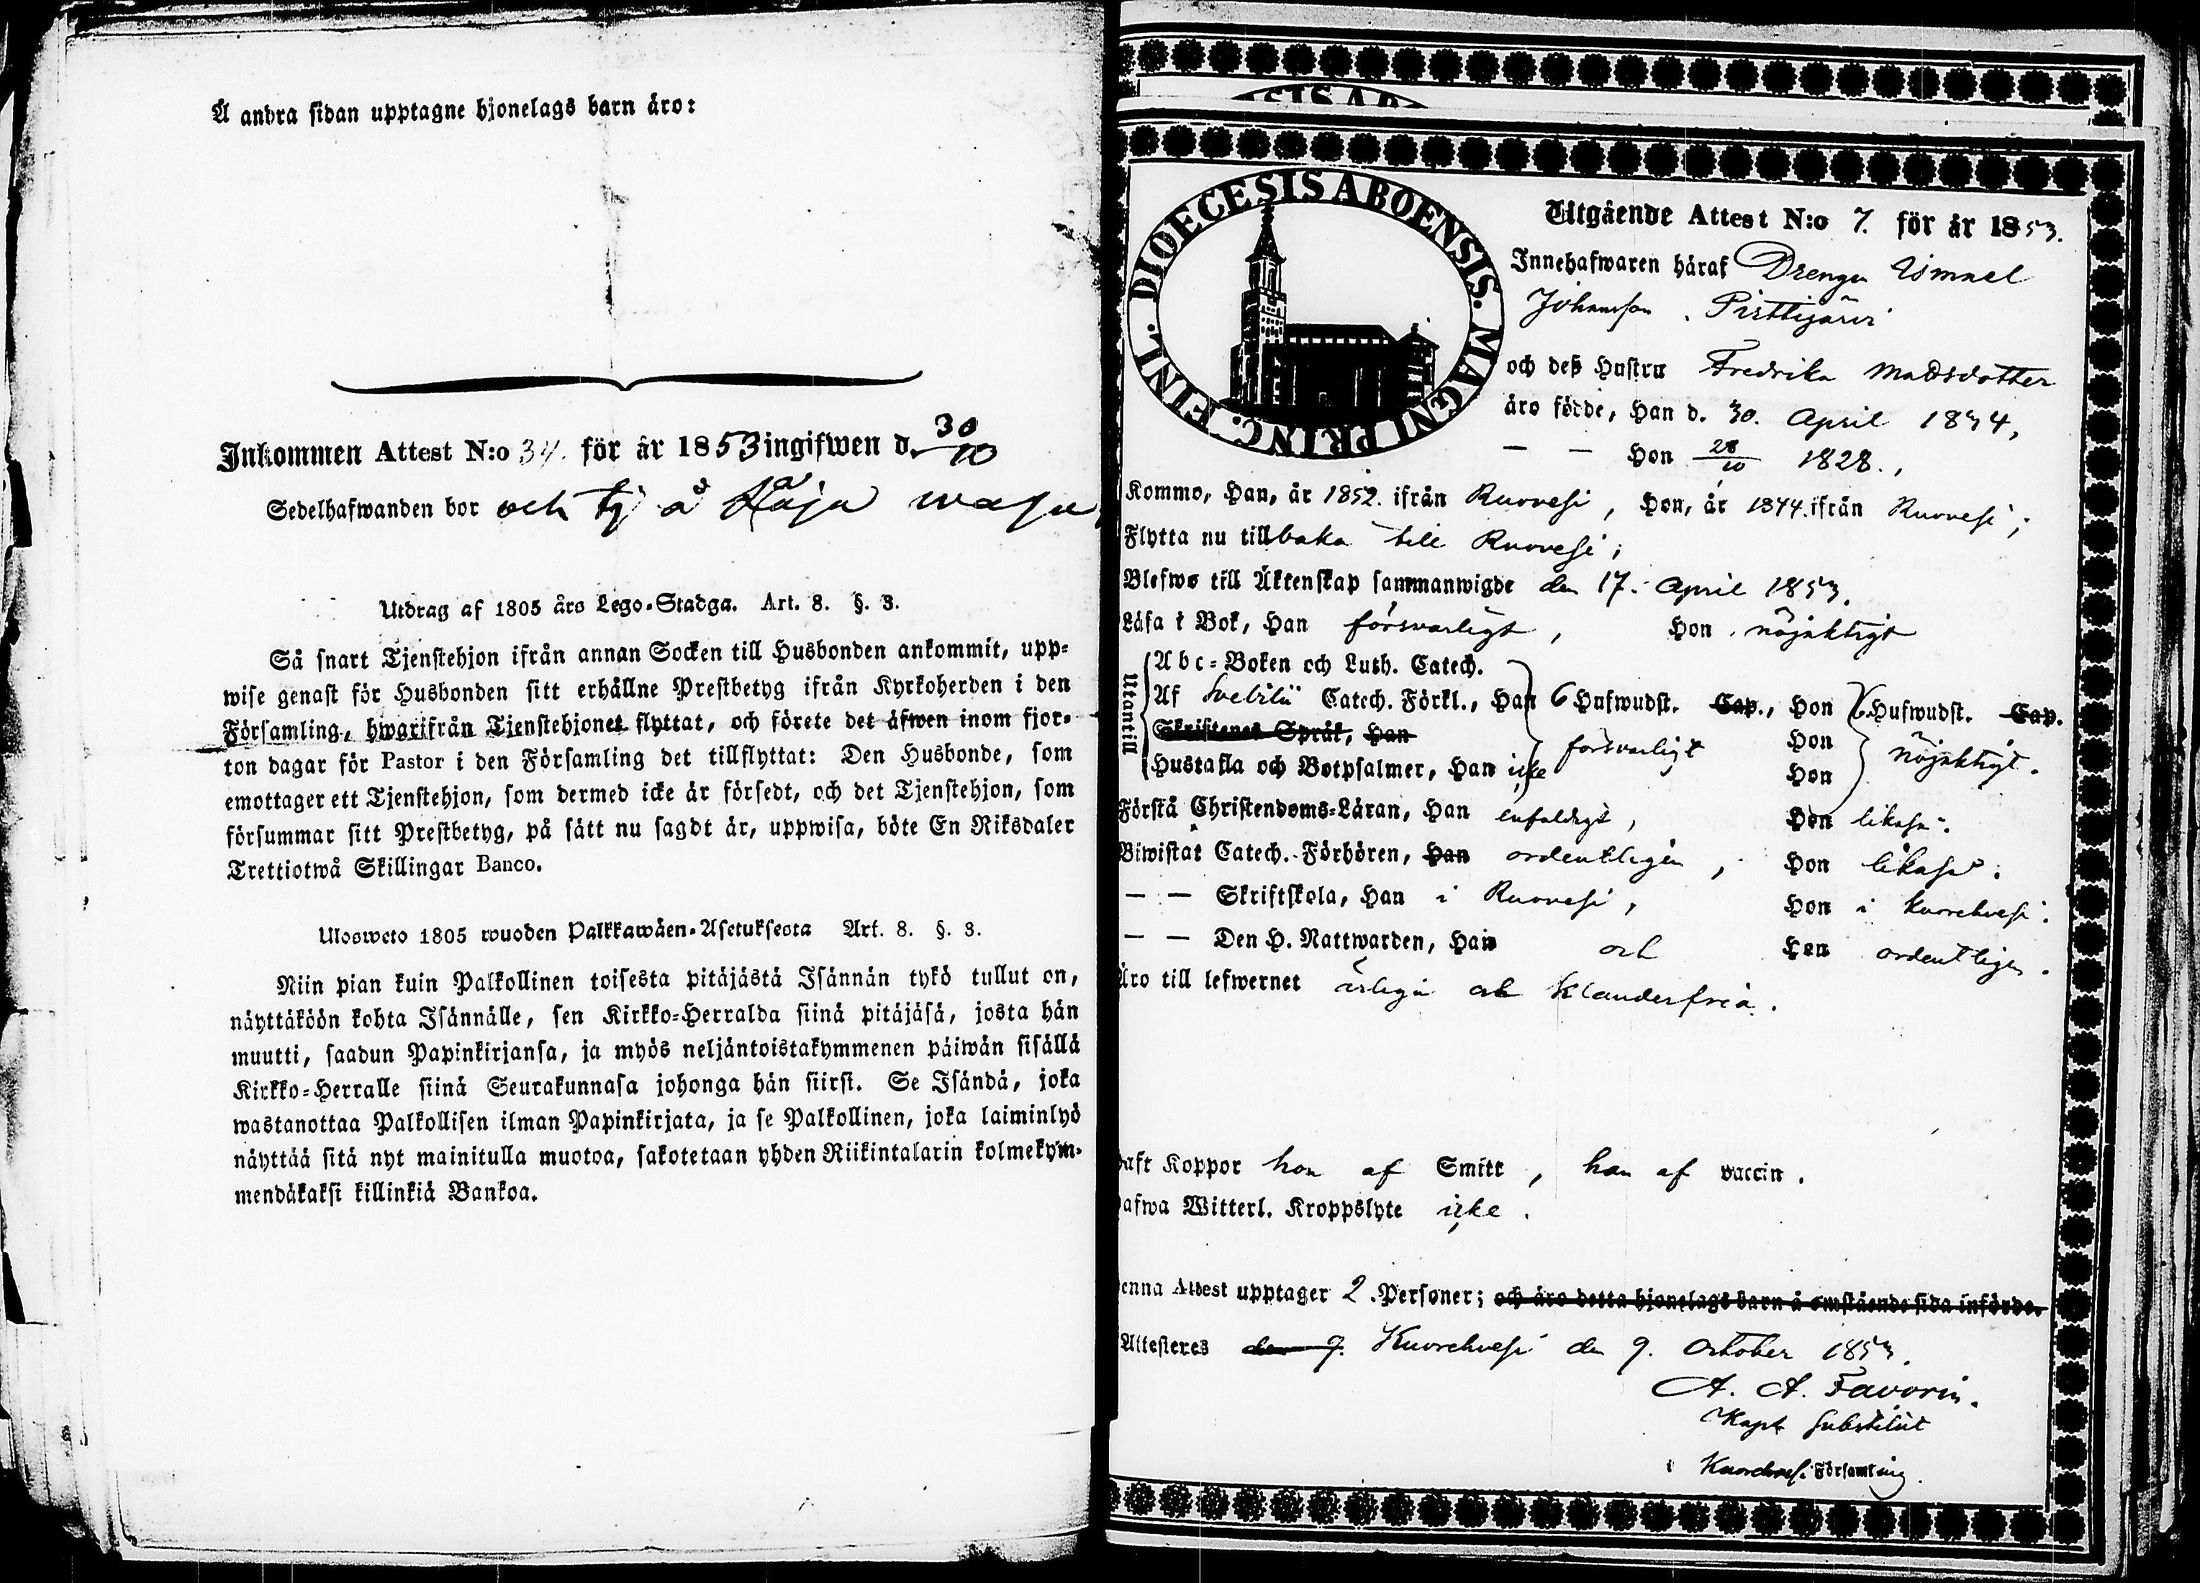 Å andra sidan upptagne hjonelags barn äro:
Inkommen Attest N:o 34. för år 1853 ingifwen d. 30/10
Sedelhafwanden bor och tj å Käja wasu
Utdrag af 1805 års Lego-Stadga. Art. 8. §. 3.
Så snart Tjenstehjon ifrån annan Socken till Husbonden ankommit, upp-
wise genast för Husbonden sitt erhållne Prestbetyg ifrån Kyrkoherden i den
Församling, hwarifrån Tjenstehjonet flyttat, och förete det äfwen inom fjor-
ton dagar för Pastor i den Församling det tillflyttat: Den Husbonde, som
emottager ett Tjenstehjon, som dermed icke är försedt, och det Tjenstehjon, som
försummar sitt Prestbetyg, på sätt nu sagdt är, uppwisa, böte En Riksdaler
Trettiotwå Skillingar Banco.
Ulosweto 1805 wuoden Palkkawäen-Asetuksesta Art. 8. §. 3.
Niin pian kuin Palkollinen toisesta pitäjästä Isännän tykö tullut on,
näyttäköön kohta Isännälle, sen Kirkko-Herralda siinä pitäjäsä, josta hän
muutti, saadun Papinkirjansa, ja myös neljäntoistakymmenen päiwän sisällä
Kirkko-Herralle siinä Seurakunnasa johonga hän siirsi. Se Isändä, joka
wastanottaa Palkollisen ilman Papinkirjata, ja se Palkollinen, joka laiminlyö
näyttää sitä nyt mainitulla muotoa, sakotetaan yhden Riikintalarin kolmekym-
mendäkaksi killinkiä Bankoa.
DIOECESIS ABOENSIS. MAGNI PRINC. FINL.
Utgående Attest N:o 7. för år 1853.
Innehafwaren häraf Drengen Ismael
Johansson. Pirttijärvi
och deß Hustru Fredrika Madsdotter
äro födde, Han d. 30. April 1834,
— — Hon 28/10 1828.,
Kommo, Han, år 1852. ifrån Ruovesi, Hon, år 1844. ifrån Ruovesi;
Flytta nu tillbaka till Ruovesi;
Blefwo till Äktenskap sammanwigde den 17. April 1853.
Läsa i Bok, Han försvarligt, Hon nöjaktigt
Utantill
Abc-Boken och Luth. Catech.
Af Svebilii Catech. Förkl., Han 6 Hufwudst. Cap., Hon 6 Hufwudst. Cap.
Skriftenes Språk, Han försvarligt Hon nöjaktigt.
Hustafla och Botpsalmer, Han icke Hon
Förstå Christendoms-Läran, Han enfaldigt, Hon likaså.
Biwistat Catech. Förhören, Han ordentligen, Hon likaså.
— — Skriftskola, Han i Ruovesi, Hon i Kuorehvesi.
— — Den H. Nattwarden, Han och Hon ordentligen.
Äro till lefwernet ärliga och klanderfria.
Haft Koppor hon af Smitt, han af vaccin.
Hafwa Witterl. Kroppslyte icke.
Denna Attest upptager 2. Personer; och äro detta hjonelags barn å omstående sida införde.
Attesteres den 9. Kuorehvesi den 9. October 1853.
A. A. Favorin.
Kapl Substitut
i Kuorehvesi Församling.